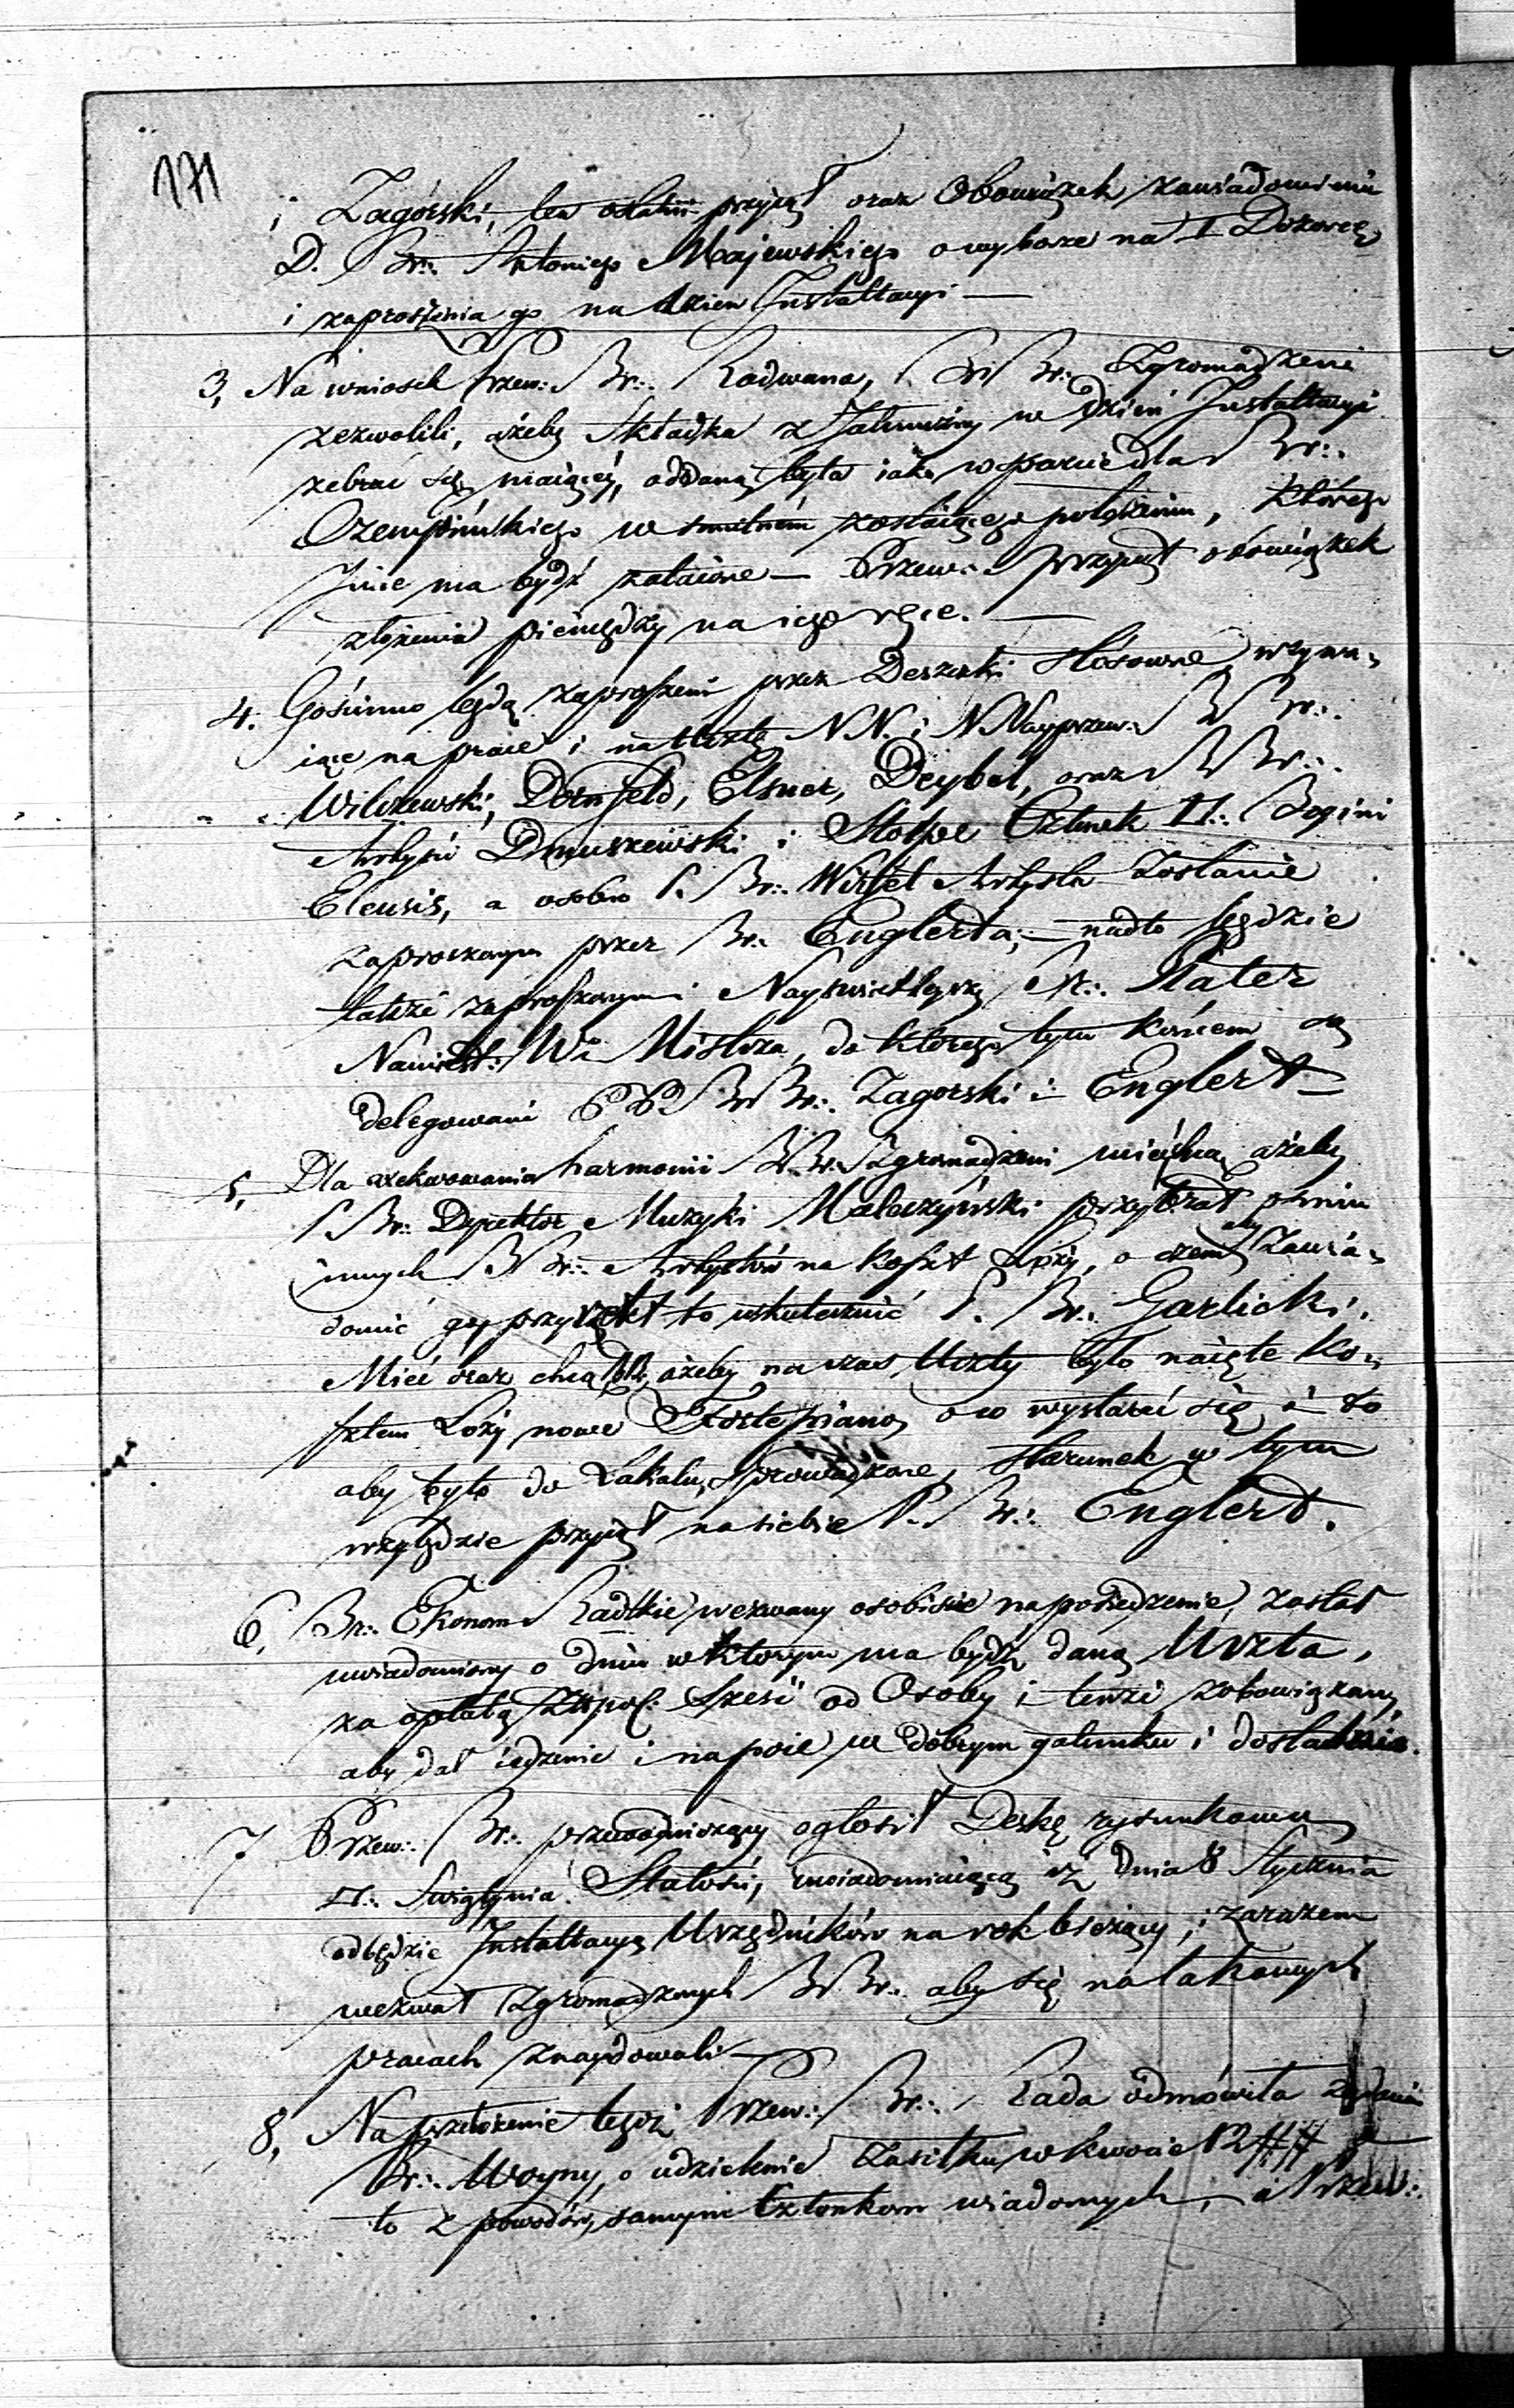 171
i Zagórski, ten ostatni przyjął oraz Obowiązek zawiadomienia
D. Br:. Antoniego Majewskiego o wyborze na I Dozorcę
i zaproszenia go na dzien Installacyi —
3, Na wniosek Przew:. Br:. Radwana, Br Br:. Zgromadzeni
zezwolili, ażeby Składka z Jałmużny w dzień Installacyi
zebrać się maiącéj, oddaną była iako wsparcie dla Br:.
w smutném zostaiącego położeniu, którego
Jmie ma bydź zataione — Przew:. przyjął obowiązek
złożenia pieniędzy na iego ręce. —
4. Gośćinno będą zaproszeni przez Deszczki stosowne wzywa-
iące na prace i na Ucztę NN. i NNayprzew:. BBr:.
Wilczewski, Dornfeld, Elsner, Deybel, oraz BBr:.
Artyści Dmuszewski i Stolpe Członek □:. Bogini
Eleusis, a osobno P. Br:. Artysta zostanie
zaproszonym przez Br:. Englerta; — nadto będzie
także zaproszonym Nayświetleyszy Br:. Plater
Namiest:. W:. Mistrza, do którego tym końcem są
delegowani PP BrBr:. Zagorski i Englert —
5, Dla exekwowania harmonii BBr:. Zgromadzeni mieć chcą ażeby
P. Br:. Dyrektor Muzyki Małaczyński przybrał
innych BBr:. Artystów na koszt Loży, o czem aby zawia-
domić go, przyrzekł to uskutecznić P. Br:. Garlicki.
Mieć oraz chcą BB, ażeby na czas Uczty było naięte Ko-
sztem Loży nowe Fortepiano, o co wystarać się i to
aby było do Lokalu sprowadzone, starunek w tym
względzie przyjął na siebie P. Br:. Englert.
6, Br:. Ekonom Radtkie wezwany osobiście na posiedzenie, został
uwiadomiony o dniu w ktorym ma bydź daną Uczta,
za opłatą Złł pol: Sześć od Osoby i tenże zobowiązany,
aby dał iedzenie i napoie w dobrym gatunku i dostatnie.
7 Przew:. Br:. przewodniczący ogłosił Deskę rysunkową
□:. Swiątynia Stałości, uwiadomiaiącą iż dnia 8 Stycznia
odbędzie Installacyą Urzędników na rok bieżący, i zarazem
wezwał Zgromadzonych BBr:. aby się na takowych
pracach znaydowali —
8, Na przełożenie tegoż Przew:. Br:. Rada odmówiła żądania
Br:. Woyny, o udzielenie zasiłku w kwocie 12 ##
to z powodów, samym Członkom wiadomych, a Przew:.